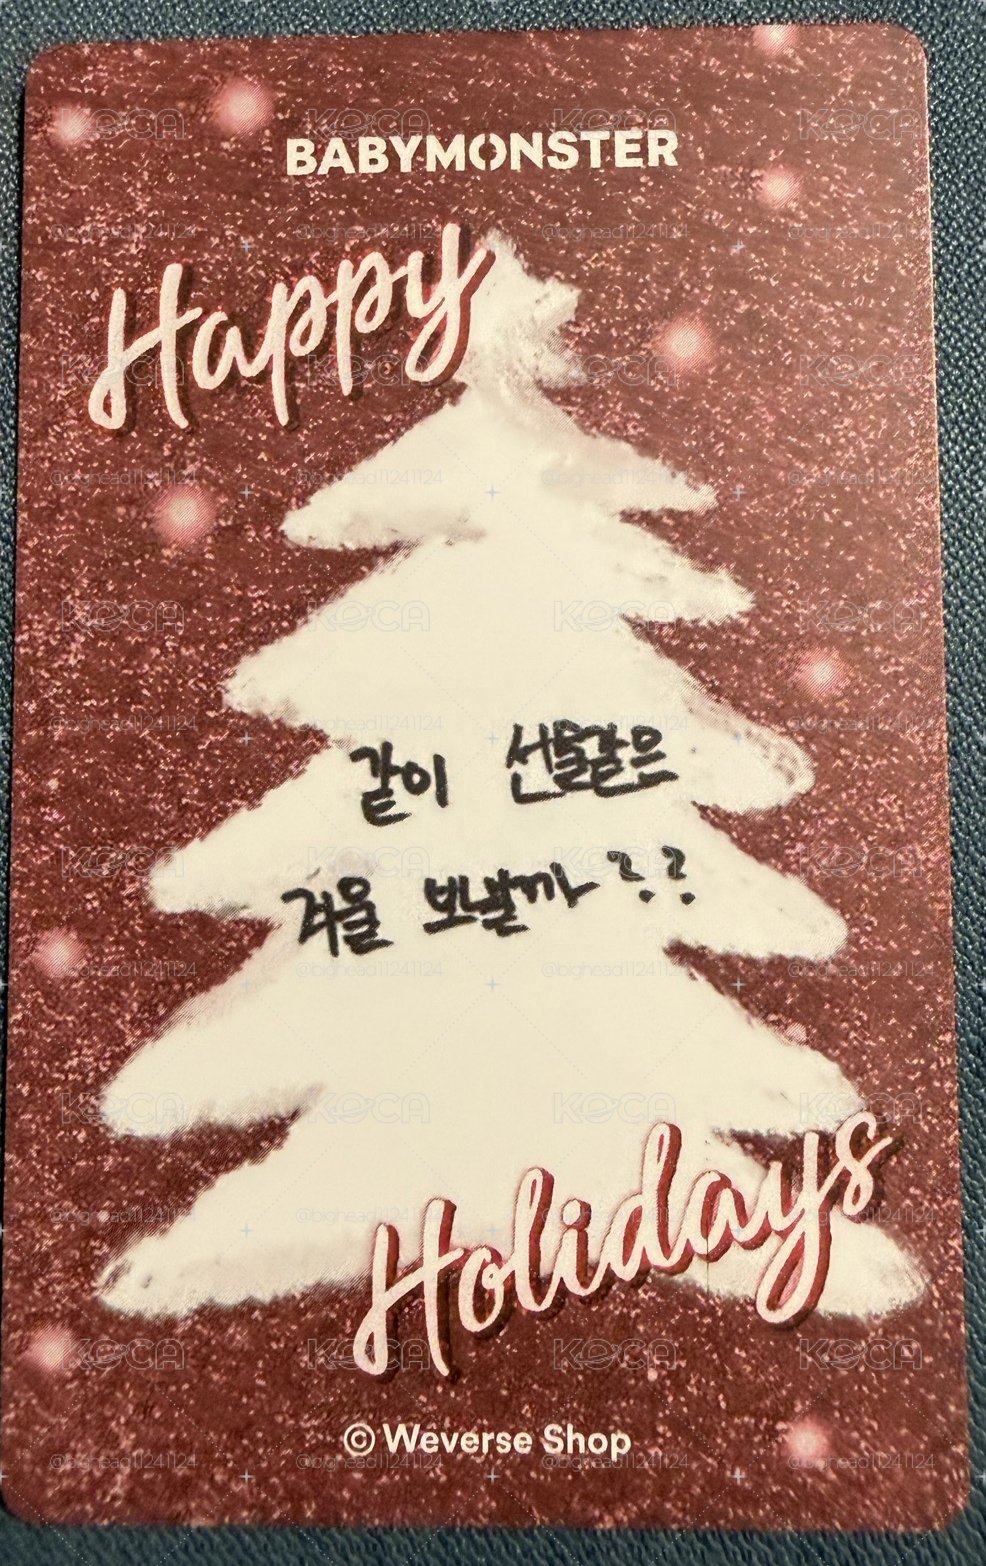 BABYMONSTER
Happy
같이 선물같은
겨울 보낼까??
Holidays
© Weverse Shop
KOCA
@bighead11241124